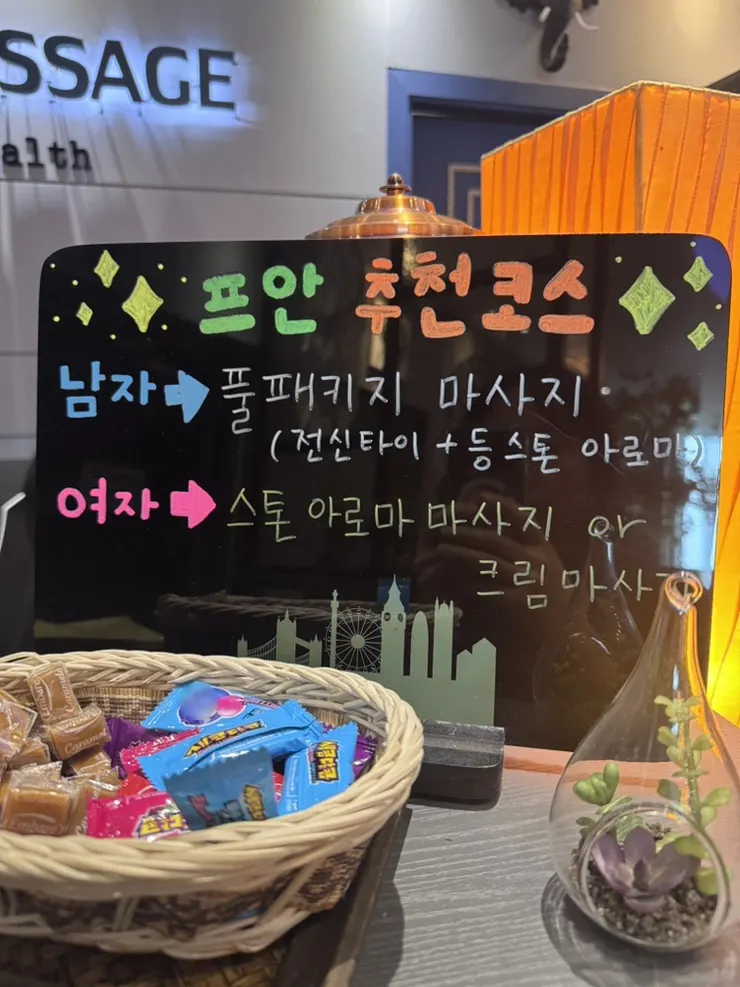 SSAGE
alth
프안 추천코스
남자➡풀패키지 마사지
(전신타이 + 등스톤 아로마)
여자➡스톤 아로마 마사지 or
크림마사
Caramel
새콤달콤